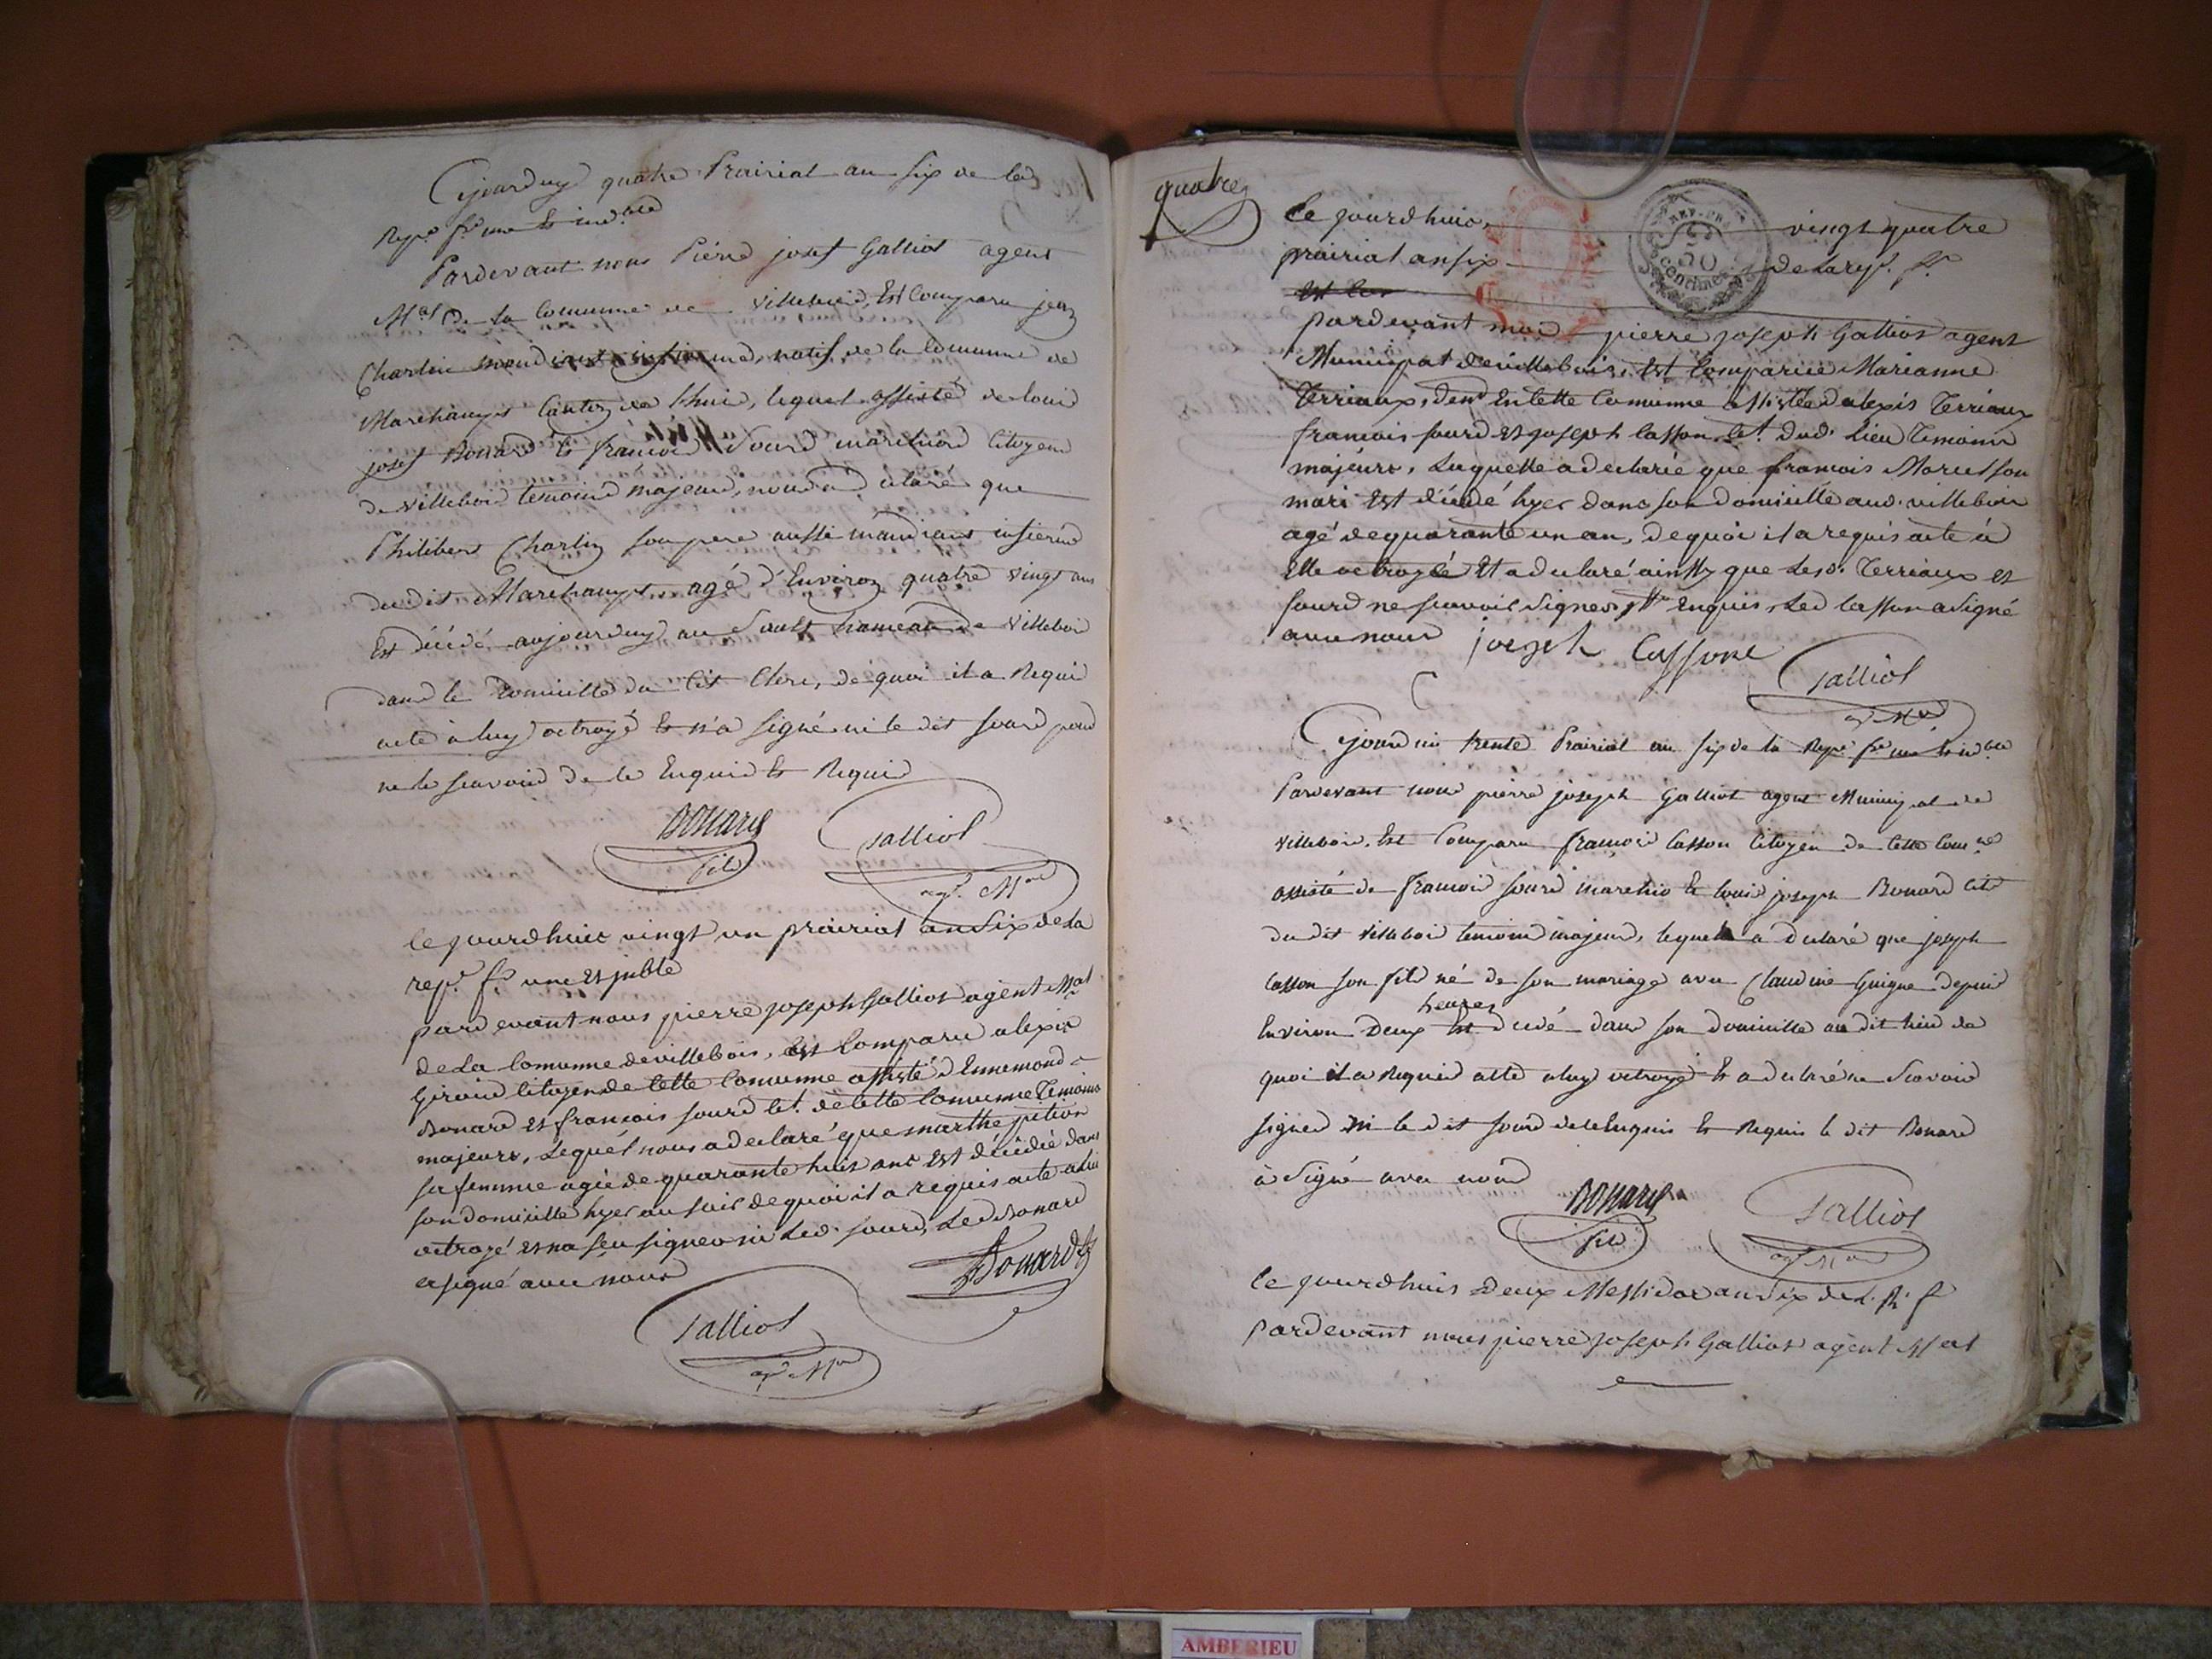 Cejourduy quatre Prairial an six de la
Repe fse une et indble
Pardevant nous Piérre josef Galliot agent
Mal De la Commune de villebois, Est Comparu jean
Charlin mendiant infirme, natif de la Commune de
Marchamps Canton de l'huis, lequel assisté de louis
josef Bonard et francois Sourd marchand Citoyens
de villebois temoins majeurs, nous a déclaré que
Philibert Charlin son pere aussi mandiant infierme
du dit Marchamps agé d'Environ quatre vingt ans
Est décédé aujourduy au Sault hameau de Villebois
dans le Domicille du Cit Clerc, de quoi il a Requis
acte a luy octroyé et n'a signé ni le dit sourd pour
ne le scavoir De le Enquis et Requis
Bonard
fils
Galliot
agt Mal
Cejourdhuis vingt un prairial an Six de La
repe fse une et jnble
pardevant nous pierre Joseph Galliot agent Mal
de La Comunne de villebois, est Comparu alexis
Giroud Citoyen de Cette Comunne assisté d'Ennemond
Bonard et francois sourd Cit. de Cette Comunne Temoins
majeurs, Lequel nous a declaré que marthe pition
sa femme agée de quarante huis ans Est décédée dans
son domicille hyer au soir de quoi il a requis acte a Lui
octroyé et na seu signer ni Led. sourd, Led Bonard
a signé avec nous
Bonard
Galliot
agt Mal
quatre
Ce jourdhuis, vingt quatre
prairial an six de La rep. fse
REP. FRA
50
CENTIMES
pardevant moi pierre joseph Galliot agent
Municipal de villebois, est Comparüe Marianne
Terriaux, demt En Cette Comunne assistée d'alexis Terriaux
francois sourd et joseph Casson Cit. dud. Lieu Temoins
majeurs, Laquelle a declarée que francois Morel son
mari Est décédé hyer dans son Domicille aud. villebois
agé de quarante un an, de quoi il a requis acte à
Elle octroyée Et a declaré ainssy que Lesd. Terriaux et
sourd ne scavoir signer Enquis, Led Casson a signé
avec nous
joesph Cassone
Galliot
agt Mal
Cejourdui trente Prairial an six de la Repe fse une et indble
Pardevant nous pierre joseph Galliot agent Municipal de
villebois, Est Comparu francois Casson Citoyen de Cette Comne
assisté de francois sourd marchand et louis joseph Bonard Cits
du dit villebois temoins majeurs, lequel a declaré que joseph
Casson son fils né de son mariage avec Claudine Guigue depuis
heures
Environ Deux Est décédé dans son domicille au dit lieu de
quoi il a Requis acte a luy octroyé et a declaré ne scavoir
signer ni le dit sourd de le Enquis et Requis le dit Bonard
à signé avec nous
Bonard
fils
Galliot
agt Mal
Ce jourdhuis Deux Messidor an Six de L. R. f
Pardevant nous pierre joseph Galliot agent Mal
AMBERIEU